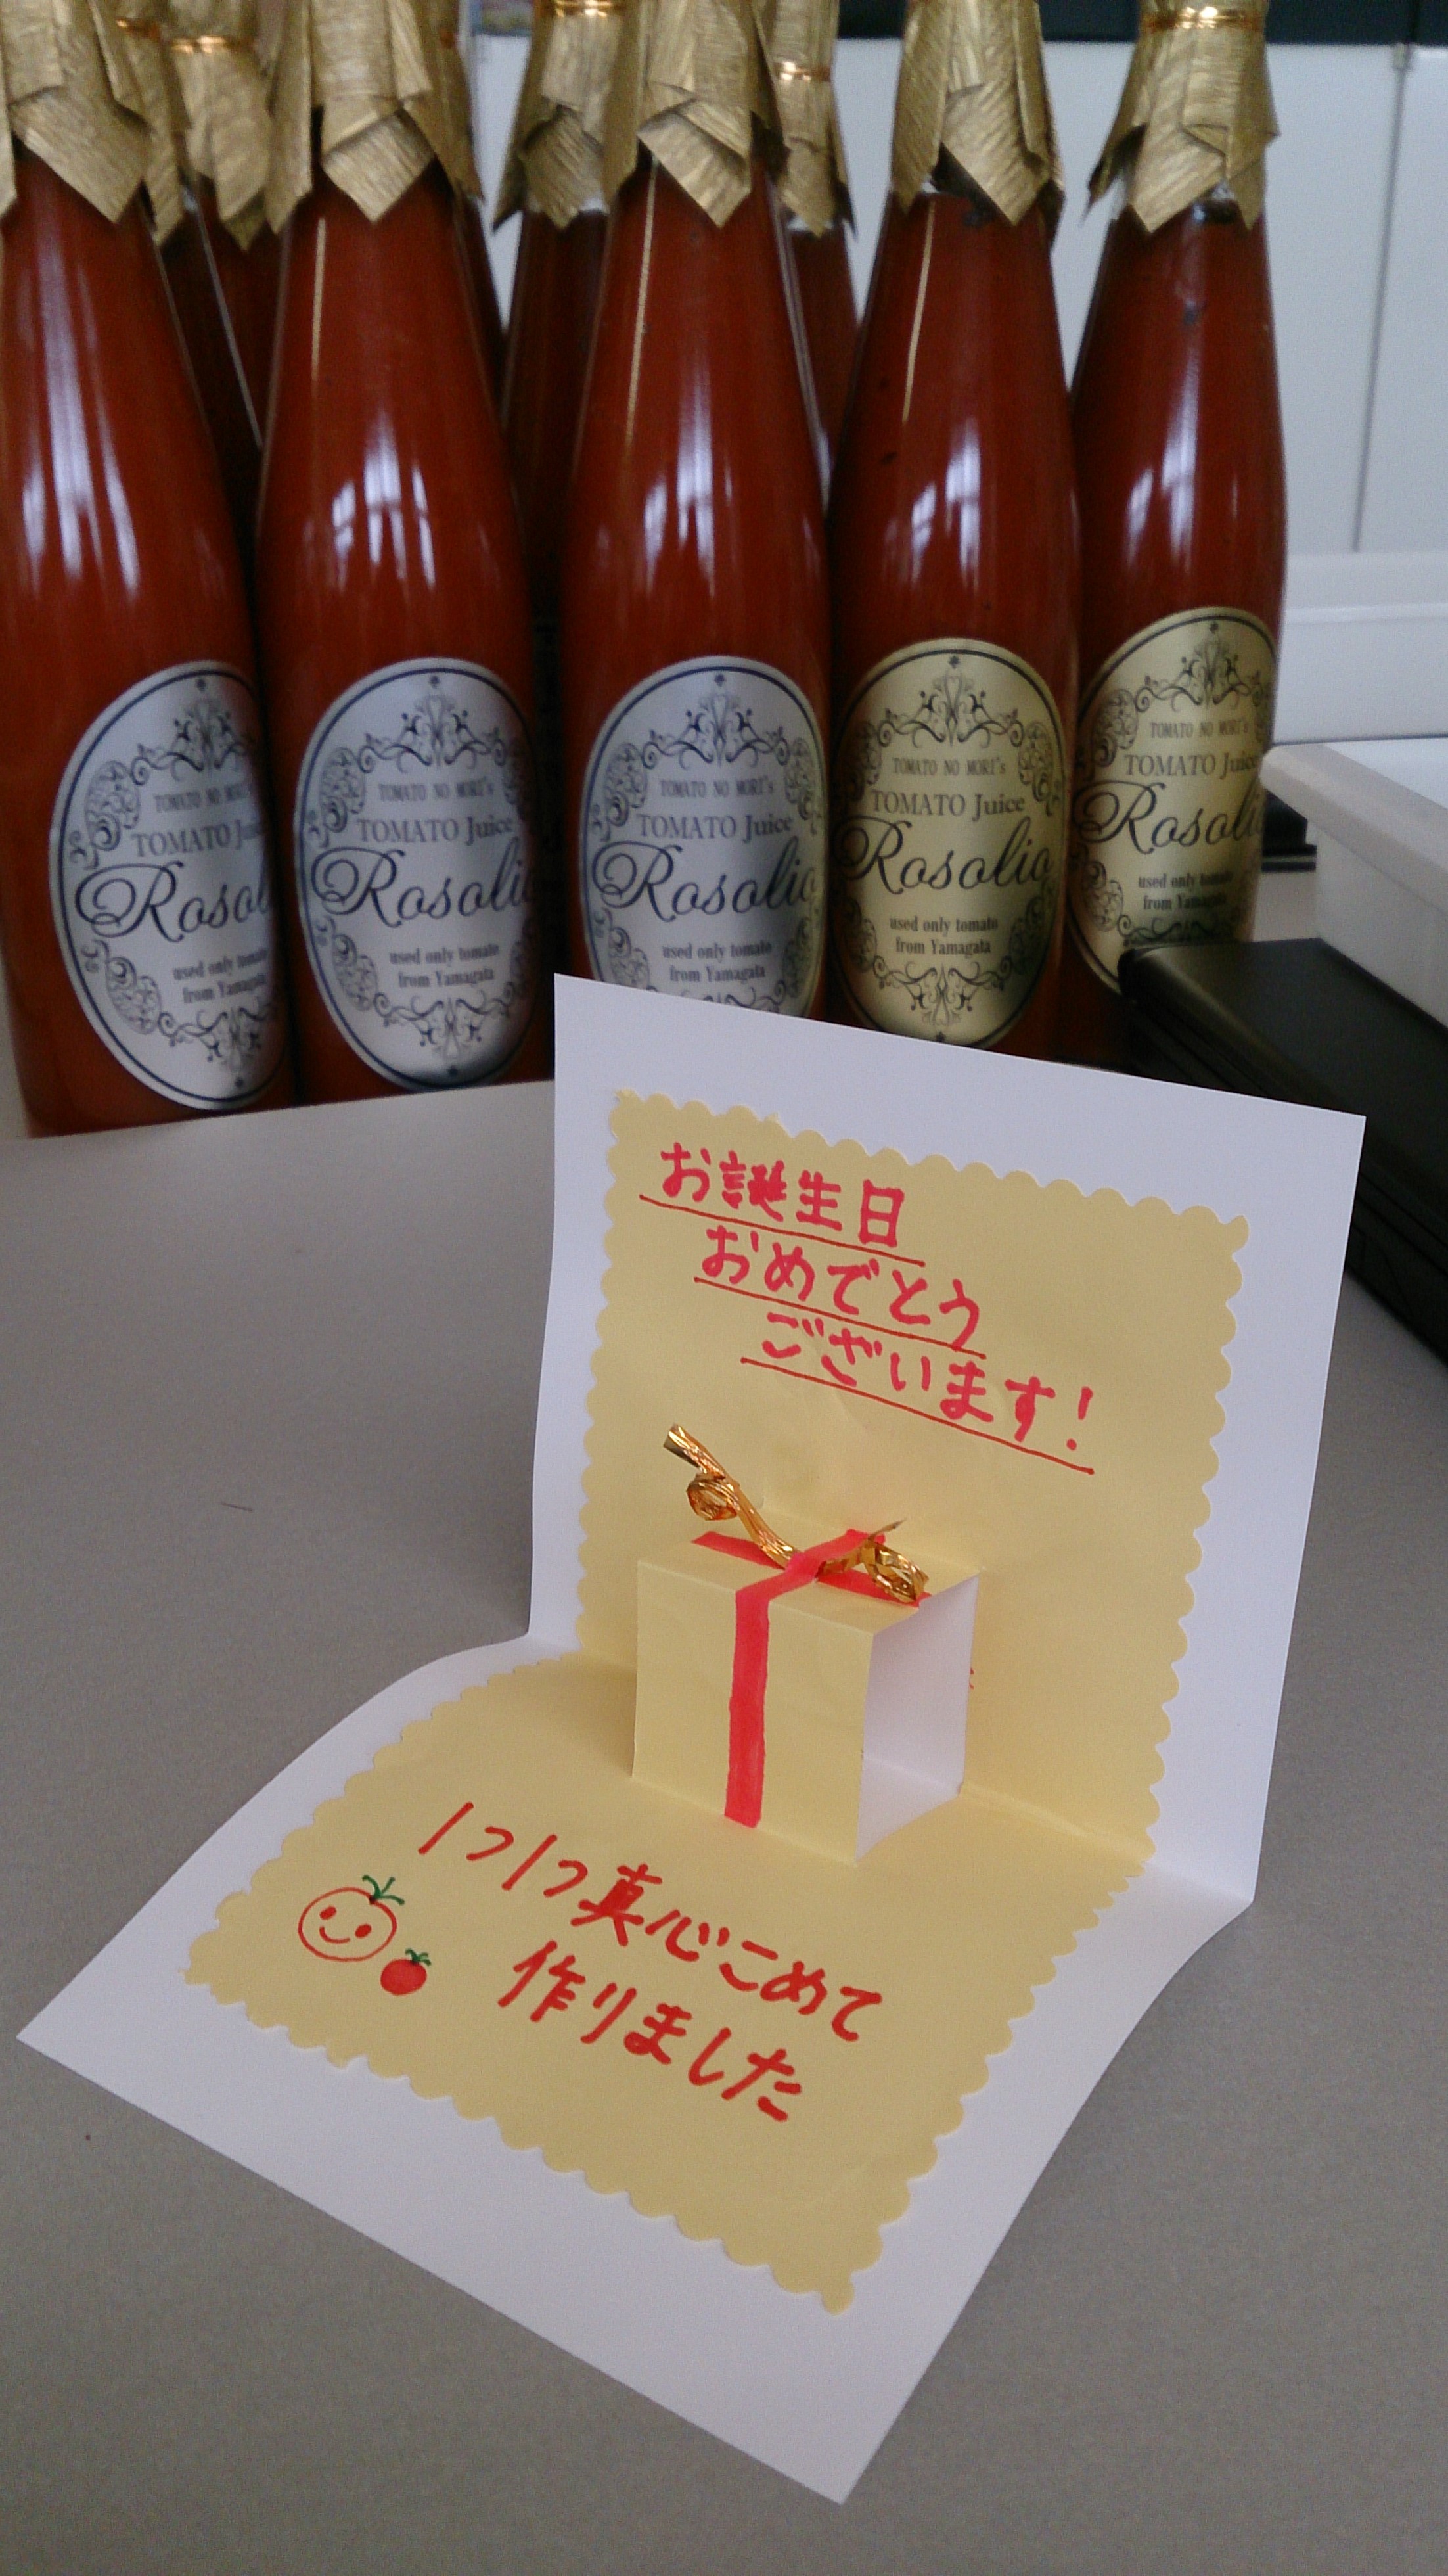 TOMATO NO MORI's
TOMATO Juice
Rosolio
used only tomato
from Yamagata
TOMATO NO MORI's
TOMATO Juice
Rosolio
used only tomato
from Yamagata
TOMATO NO MORI's
TOMATO Juice
Rosolio
used only tomato
from Yamagata
TOMATO NO MORI's
TOMATO Juice
Rosolio
used only tomato
from Yamagata
TOMATO NO MORI's
TOMATO Juice
Rosolio
used only tomato
from Yamagata
お誕生日
おめでとう
ございます!
1つ1つ真心こめて
作りました